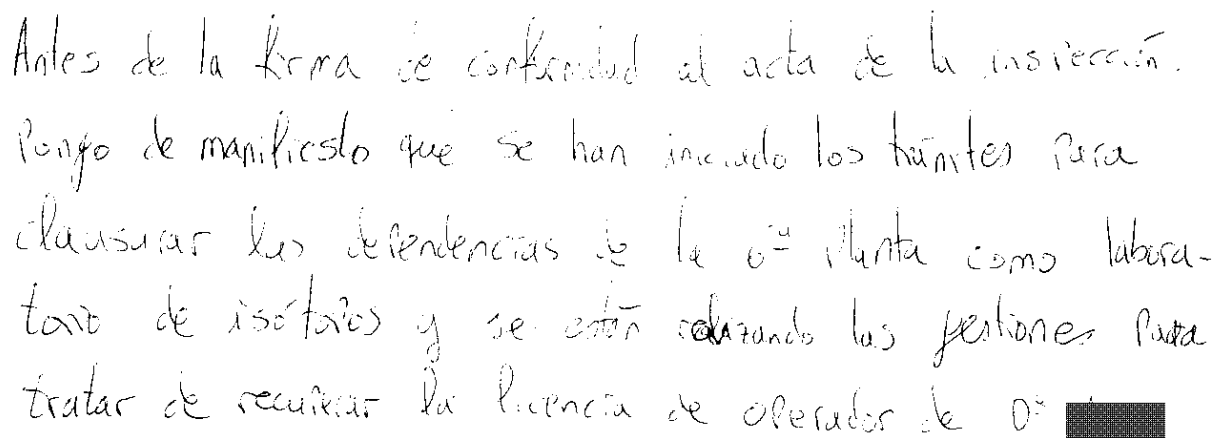 Antes de la firma de conformidad al acta de la inspección.
Pongo de manifiesto que se han iniciado los trámites para
clausurar las dependencias de la 6ª Planta como labora-
torio de isótopos y se están realizando las gestiones para
tratar de recuperar la licencia de operador de Dª